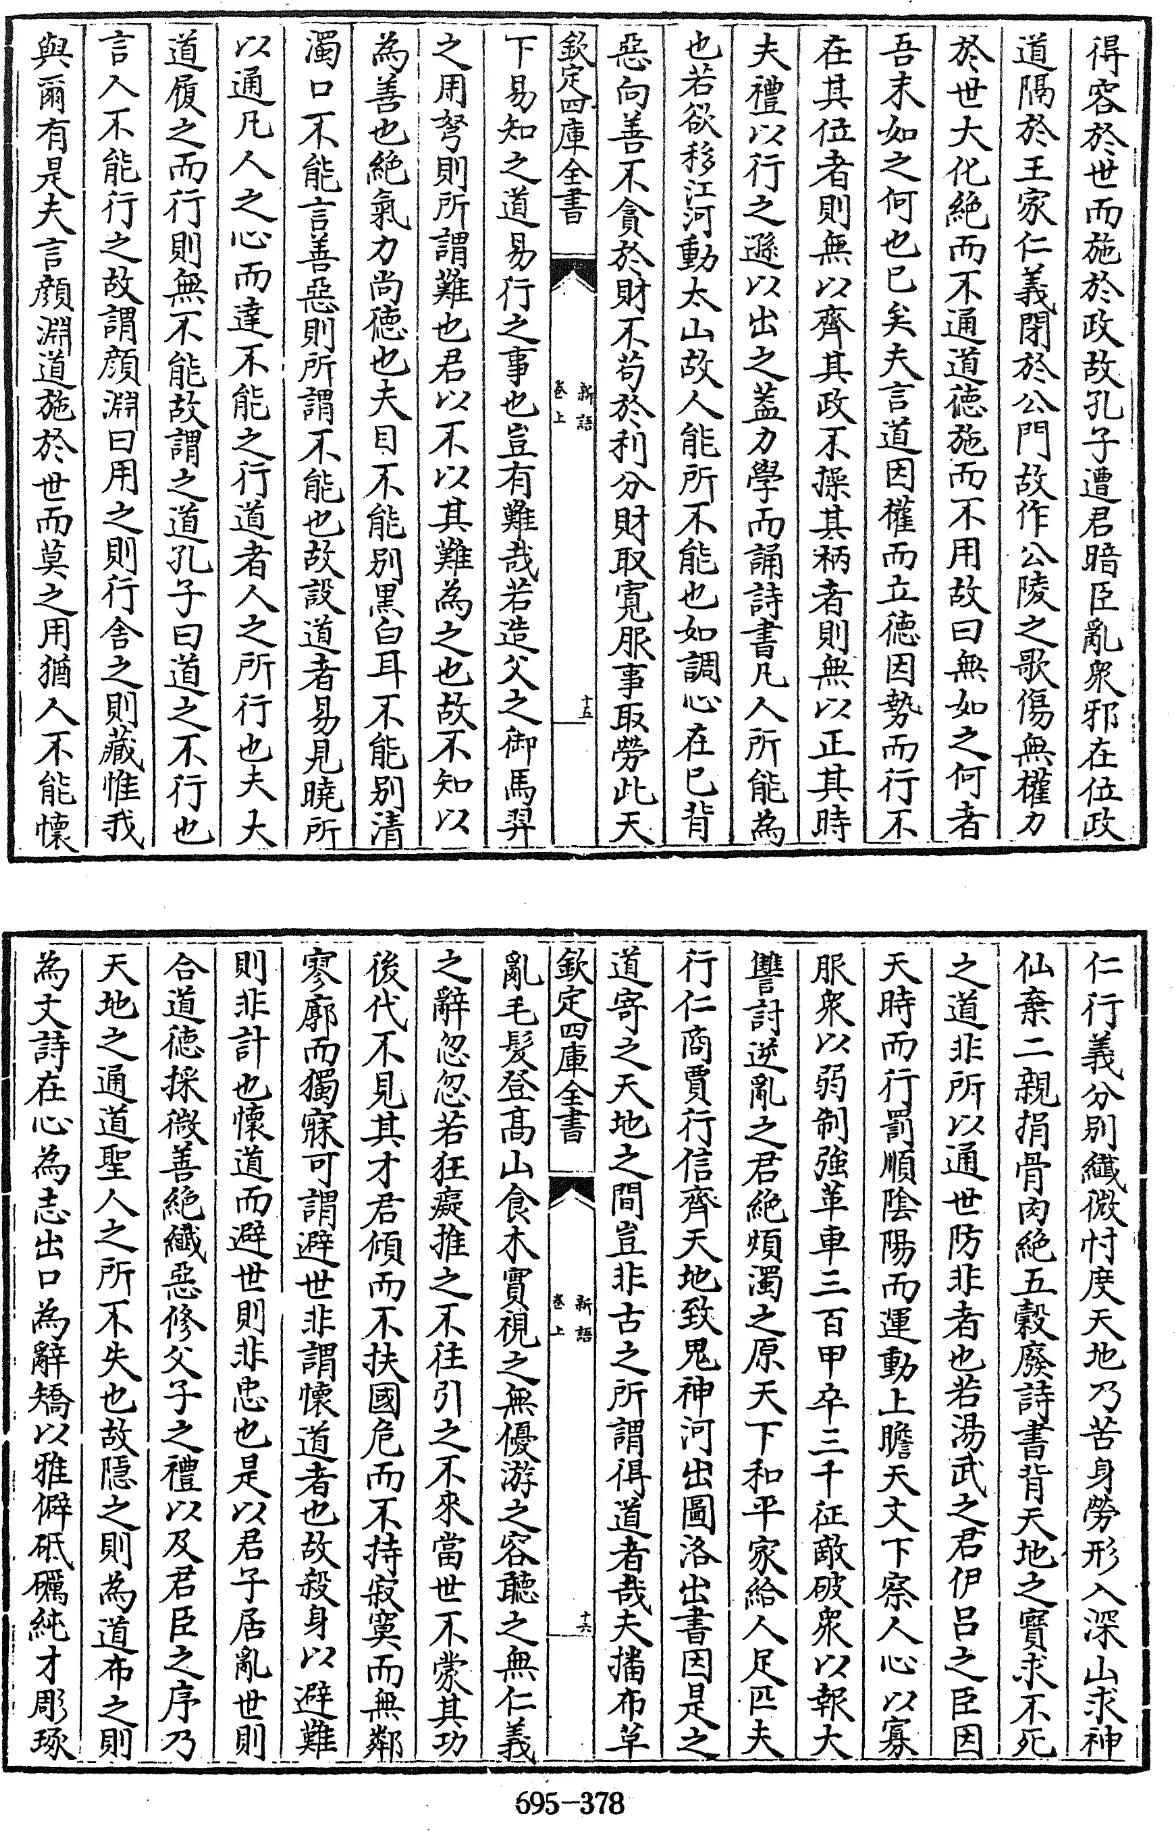 得容於世而施於政故孔子遭君暗臣亂衆邪在位政
道隔於王家仁義閉於公門故作公陵之歌傷無權力
於世大化絶而不通道徳施而不用故曰無如之何者
吾末如之何也已矣夫言道因權而立徳因勢而行不
在其位者則無以齊其政不操其柄者則無以正其時
夫禮以行之遜以出之蓋力學而誦詩書凡人所能為
也若欲移江河動太山故人能所不能也如調心在己背
惡向善不貪於財不苟於利分財取寛服事取勞此天
欽定四庫全書
新語
卷上
十五
下易知之道易行之事也豈有難哉若造父之御馬羿
之用弩則所謂難也君以不以其難為之也故不知以
為善也絶氣力尚徳也夫目不能别黒白耳不能别清
濁口不能言善惡則所謂不能也故設道者易見曉所
以通凡人之心而達不能之行道者人之所行也夫大
道履之而行則無不能故謂之道孔子曰道之不行也
言人不能行之故謂顔淵曰用之則行舎之則藏惟我
與爾有是夫言顔淵道施於世而莫之用猶人不能懷
仁行義分别纎微忖度天地乃苦身勞形入深山求神
仙棄二親捐骨肉絶五穀廢詩書背天地之寳求不死
之道非所以通世防非者也若湯武之君伊吕之臣因
天時而行罰順陰陽而運動上瞻天文下察人心以寡
服衆以弱制強革車三百甲卒三千征敵破衆以報大
讐討逆亂之君絶煩濁之原天下和平家給人足匹夫
行仁商賈行信齊天地致鬼神河出圖洛出書因是之
道寄之天地之間豈非古之所謂得道者哉夫播布草
欽定四庫全書
新語
卷上
十六
亂毛髮登高山食木實視之無優游之容聽之無仁義
之辭忽忽若狂癡推之不往引之不來當世不蒙其功
後代不見其才君傾而不扶國危而不持寂寞而無鄰
寥廓而獨寐可謂避世非謂懐道者也故殺身以避難
則非計也懐道而避世則非忠也是以君子居亂世則
合道徳採微善絶纎惡修父子之禮以及君臣之序乃
天地之通道聖人之所不失也故隠之則為道布之則
為文詩在心為志出口為辭矯以雅僻砥礪純才彫琢
695-378